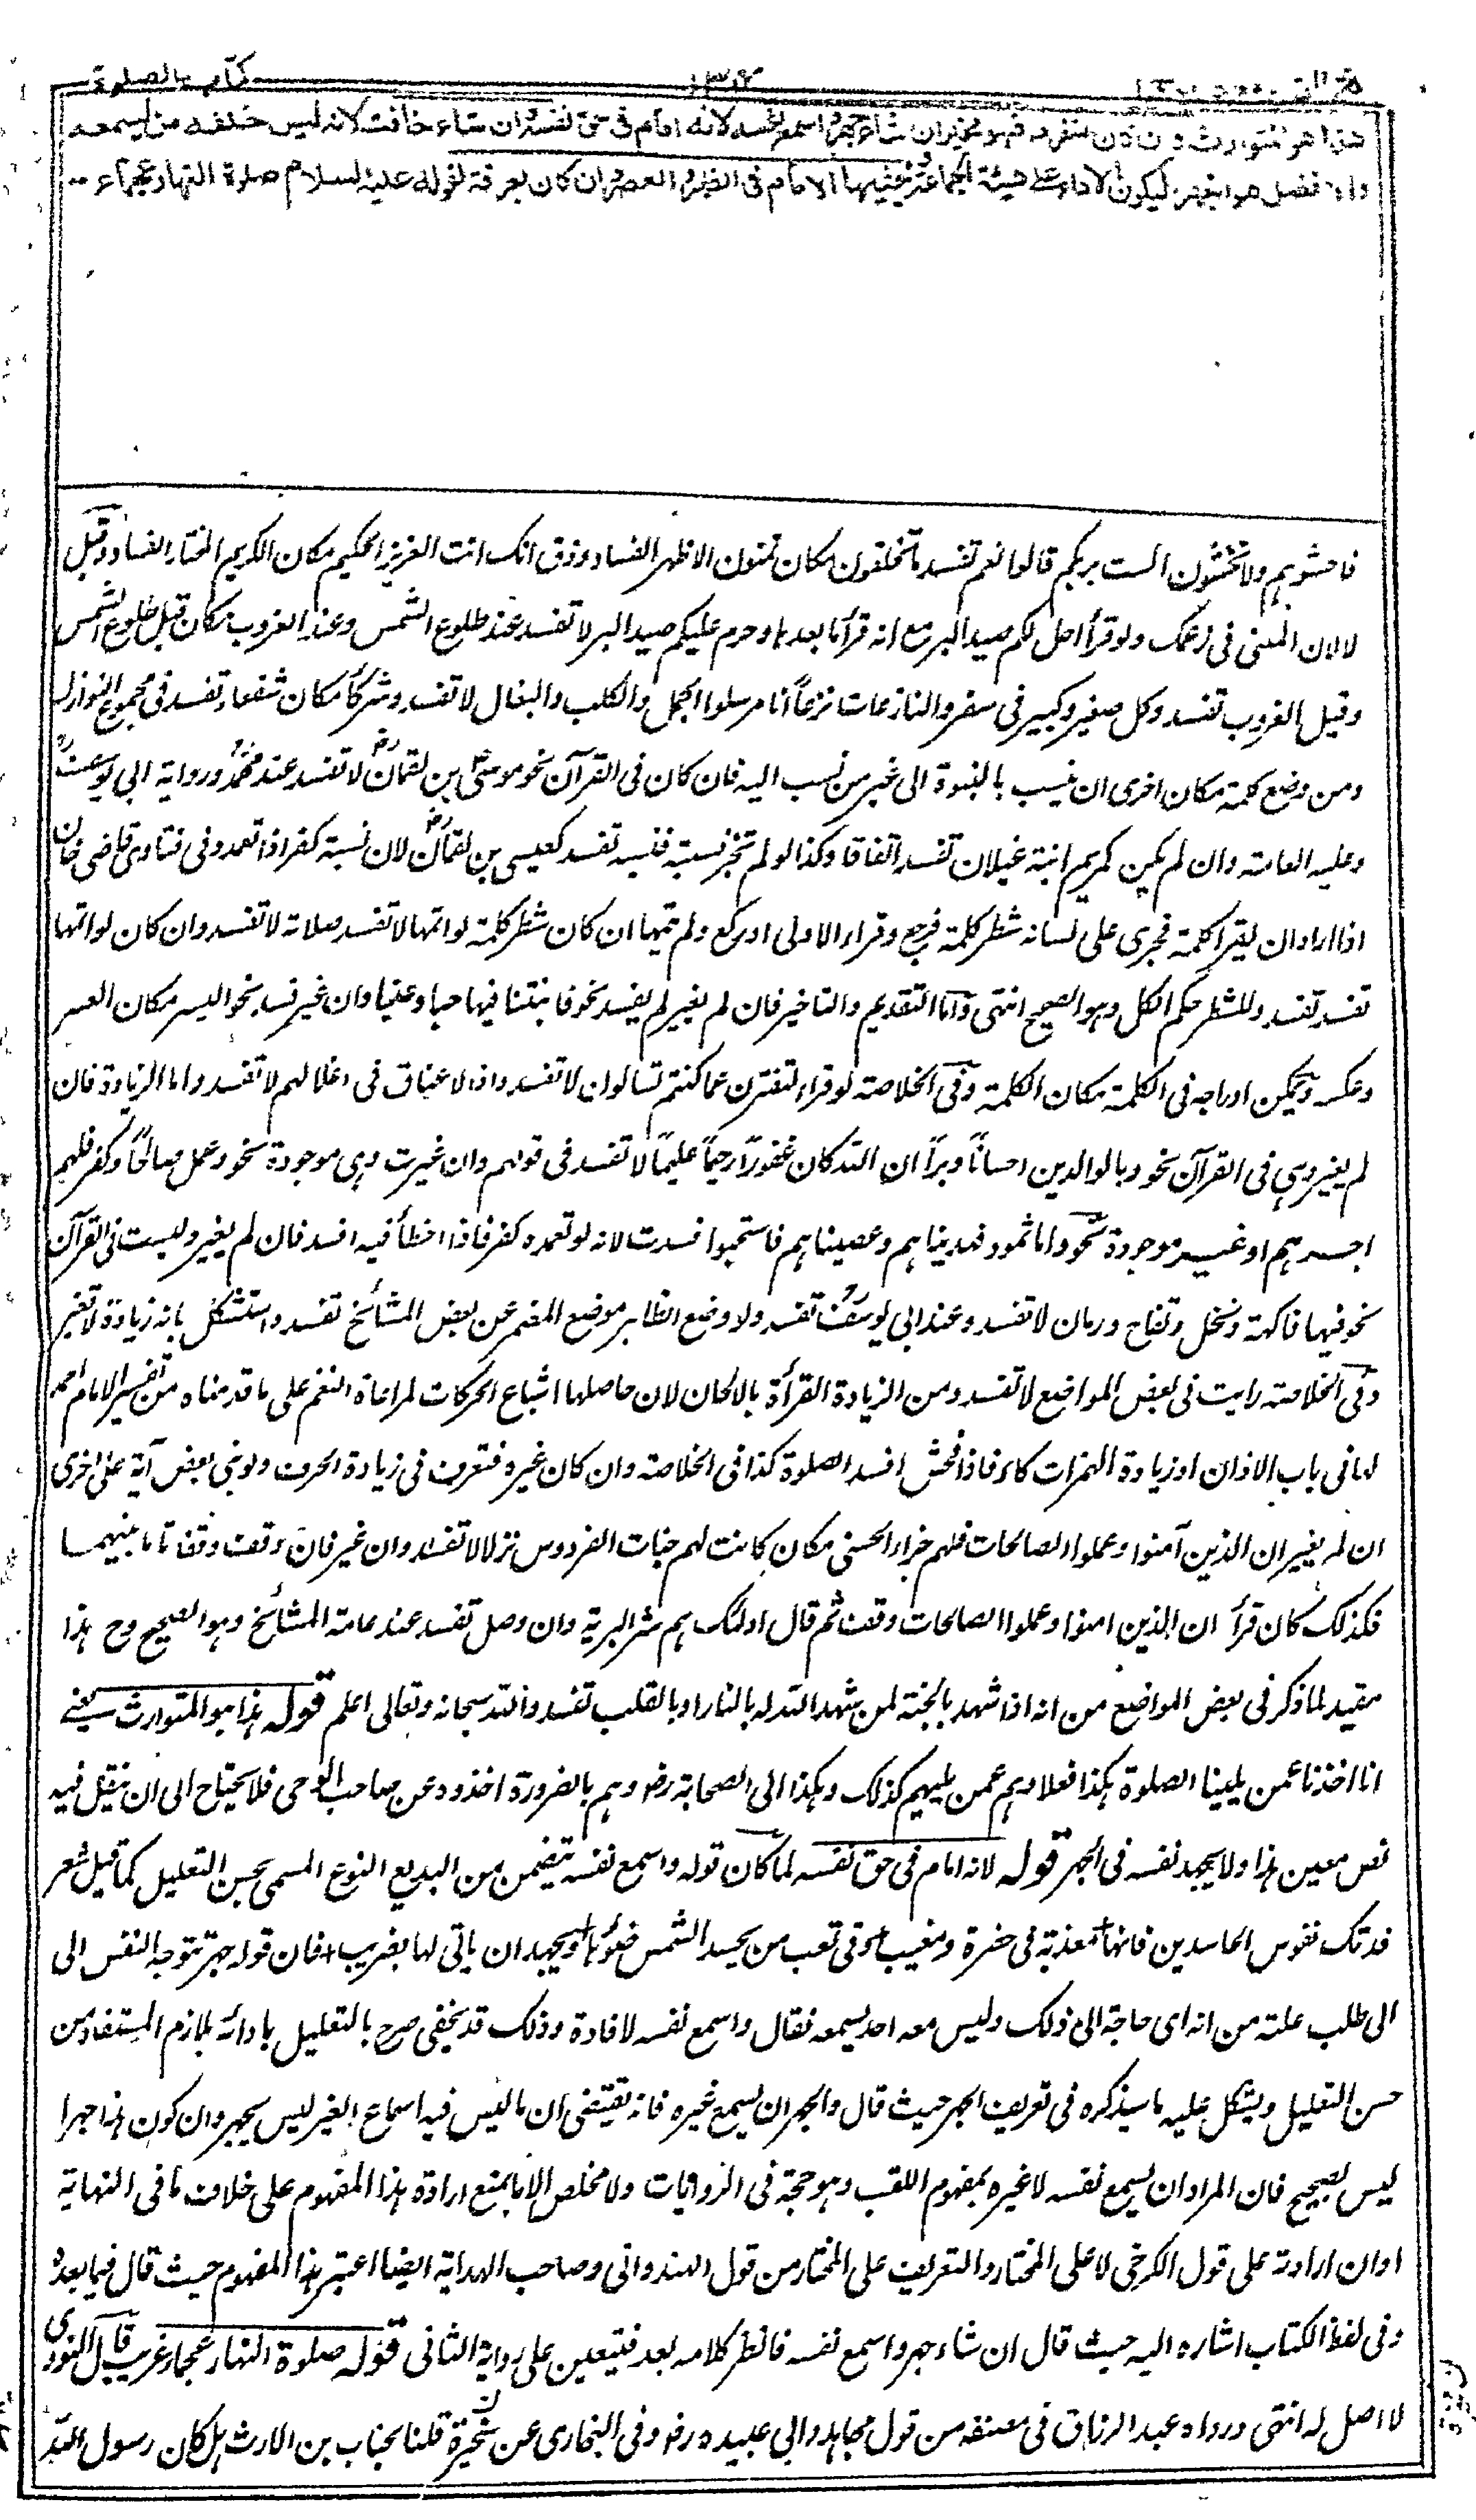 كتاب الصلوة
هذا هو المتوارث وان كان منفردا فهو مخير ان شاء جهر واسمع نفسه لانه امام فى حق نفسه وان شاء خافت لانه ليس خلفه من يسمعه
والافضل هو الجهر ليكون الاداء على هيئة الجماعة ويخفيها الامام فى الظهر والعصر وان كان بعرفة لقوله عليه السلام صلوة النهار عجماء
فاخشوهم ولا تخشون الست بربكم قالوا نعم تفسد ما تخلقون مكان تمنون الاظهر الفساد وذق انك انت العزيز الحكيم مكان الكريم المختار الفساد وقيل
لا لان المعنى فى زعمك ولو قرأ احل لكم صيد البر مع انه قرأ ما بعدها وحرم عليكم صيد البر لا تفسد عند طلوع الشمس وعند الغروب مكان قبل طلوع الشمس
وقبل الغروب تفسد وكل صغير وكبير فى سفر والنازعات نزعاً انا مرسلوا الجمل والكلب والبغال لا تفسد وشركاء مكان شفعاء تفسد فى مجموع النوازل
ومن وضع كلمة مكان اخرى ان ينسب بالبنوة الى غير من نسب اليه فان كان فى القرآن نحو موسى بن لقمان لا تفسد عند محمد ورواية ابى يوسف
وعليه العامة وان لم يكن كمريم ابنة غيلان تفسد اتفاقا وكذا لو لم تجز نسبته فنسبه تفسد كعيسى بن لقمان لان نسبته كفر اذا تعمد وفى فتاوى قاضى خان
اذا اراد ان يقرا كلمة فجرى على لسانه شطر كلمة فرجع وقراء الاولى او ركع ولم يتمها ان كان شطر كلمة لو اتمها لا تفسد صلاته لا تفسد وان كان لو اتمها
تفسد تفسد وللشطر حكم الكل وهو الصحيح انتهى واما التقديم والتاخير فان لم يغير لم يفسد نحو فانبتنا فيها حبا وعنبا وان غير فسد نحو اليسر مكان العسر
وعكسه ويمكن ادراجه فى الكلمة مكان الكلمة وفى الخلاصة لو قراء لتفترن عما كنتم تسالون لا تفسد واذ الاعناق فى اغلالهم لا تفسد واما الزيادة فان
لم يغير وهى فى القرآن نحو وبالوالدين احسانًا وبراً ان الله كان غفورًا رحيمًا عليمًا لا تفسد فى قولهم وان غيرت وهى موجودة نحو وعمل صالحًا وكفر فلهم
اجرهم او غير موجودة نحو واما ثمود فهديناهم وعصيناهم فاستحبوا افسدت لانه لو تعمده كفر فاذا اخطأ فيه افسد فان لم يغير وليست فى القرآن
نحو فيها فاكهة ونخل وتفاح ورمان لا تفسد وعند ابى يوسف تفسد ولا وضع الظاهر موضع المضمر عن بعض المشائخ تفسد واستشكل بانه زيادة لا تغير
وفى الخلاصة رايت فى بعض المواضع لا تفسد ومن الزيادة القرأة بالالحان لان حاصلها اشباع الحركات لمراعاة النغم على ما قدمناه من تفسير الامام احمد
لها فى باب الاذان او زيادة الهمزات كاء فاذا فحش افسد الصلوة كذا فى الخلاصة وان كان غيره فتعرف فى زيادة الحرف ولو بنى بعض آية على اخرى
ان لم يغير ان الذين آمنوا وعملوا الصالحات فلهم جزاء الحسنى مكان كانت لهم جنات الفردوس نزلا لا تفسد وان غير فان وقف وقفا تاما بينهما
فكذلك كان قرأ ان الذين امنوا وعملوا الصالحات وقف ثم قال اولئك هم شر البرية وان وصل تفسد عند عامة المشائخ وهو الصحيح وح هذا
مقيد لما ذكر فى بعض المواضع من انه اذا شهد بالجنة لمن شهد الله له بالنار او بالقلب تفسد والله سبحانه وتعالى اعلم قوله هذا هو المتوارث يعنى
انا اخذنا عمن يلينا الصلوة هكذا فعلا وهم عمن يليهم كذلك وهكذا الى الصحابة رض وهم بالضرورة اخذوه عن صاحب الوحى فلا يحتاج الى ان ينقل فيه
نص معين هذا ولا يجهد نفسه فى الجهر قوله لانه امام فى حق نفسه لما كان قوله واسمع نفسه يتضمن من البديع النوع المسمى بحسن التعليل كما قيل شعر
فدتك نفوس الحاسدين فانها معذبة فى حضرة ومغيب وفى تعب من يحسد الشمس ضوءها ويجهد ان ياتى لها بضريب فان قوله جهر تتوجه النفس الى
الى طلب علته من انه اى حاجة الى ذلك وليس معه احد يسمعه فقال واسمع نفسه لافادة وذلك قد يخفى صرح بالتعليل بادائه بلازم المستفاد من
حسن التعليل ويشكل عليه ما سيذكره فى تعريف الجهر حيث قال والجهر ان يسمع غيره فانه يقتضى ان ما ليس فيه اسماع الغير ليس بجهر وان كون هذا جهرا
ليس بصحيح فان المراد ان يسمع نفسه لا غيره بمفهوم اللقب وهو حجة فى الروايات ولا مخلص الا بما يمنع ارادة هذا المفهوم على خلاف ما فى النهاية
او ان ارادته على قول الكرخى لا على المختار والتعريف على المختار من قول الهندوانى وصاحب الهداية ايضا اعتبر هذا المفهوم حيث قال فيما بعده
وفى لفظ الكتاب اشاره اليه حيث قال ان شاء جهر واسمع نفسه فانظر كلامه بعد فتيعين على رواية الثانى قوله صلوة النهار عجماء غريب قال النووى
لا اصل له انتهى ورواه عبد الرزاق فى مصنفه من قول مجاهد وابى عبيده رض وفى البخارى عن سخبرة قلنا لخباب بن الارث هل كان رسول الله